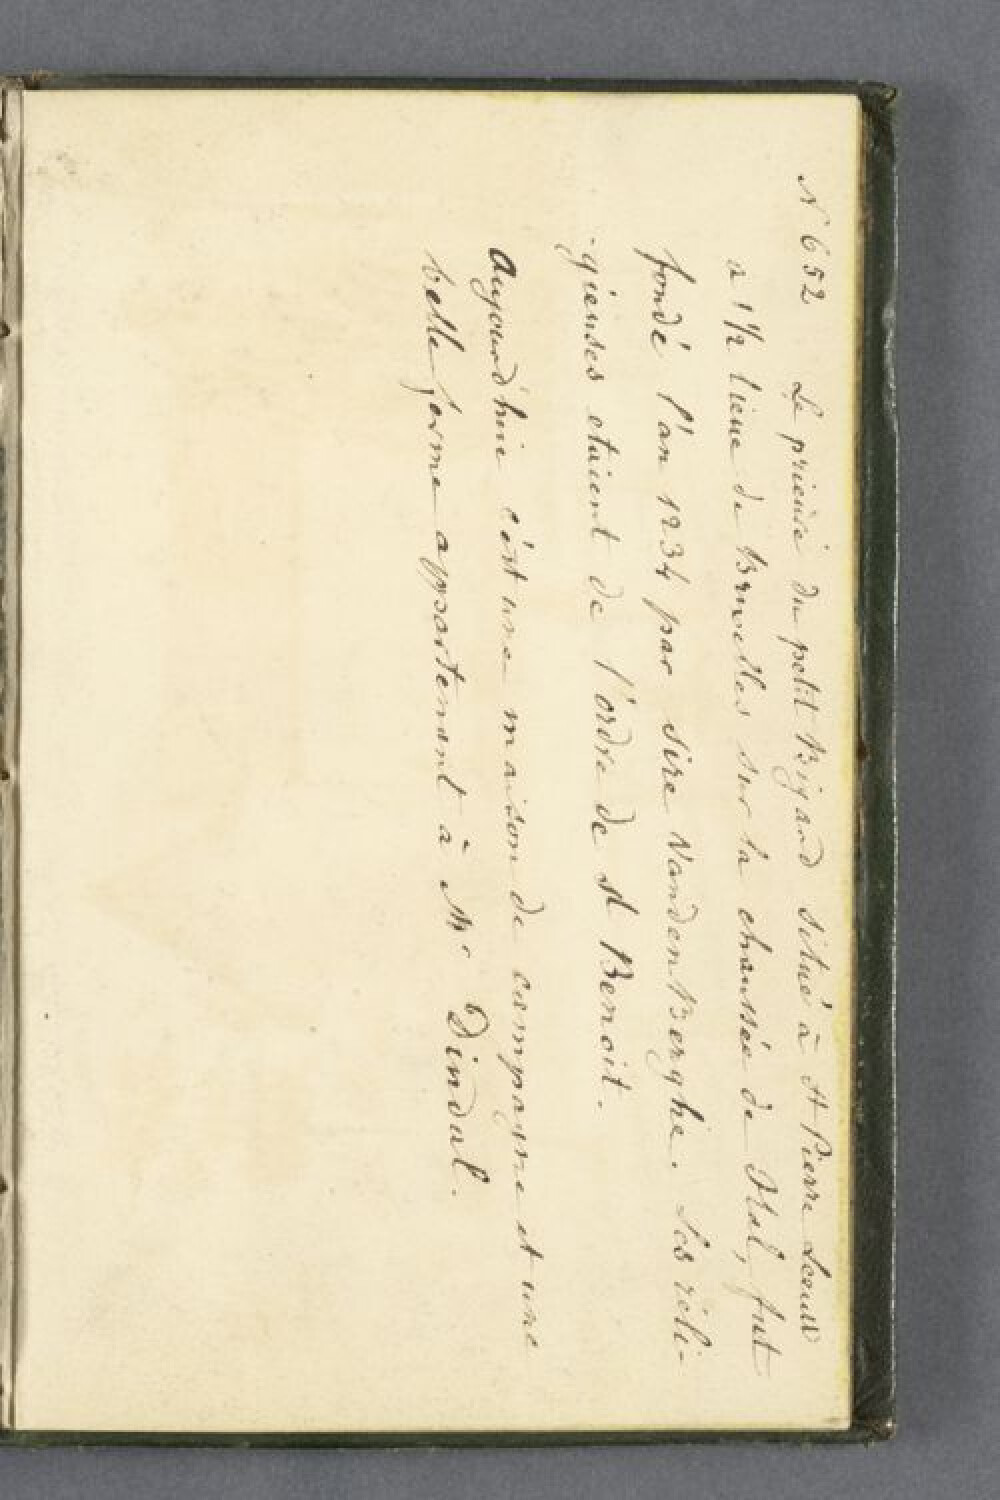 N 652 Le prieuré du petit Bigard situé à St Pierre Leeuw
a 1 1/2 lieue de Bruxelles sur la chaussée de Hal, fut
fondé l'an 1234 par sire VandenBerghe. Les réli-
-gieuses etaient de l'ordre de St Benoit.
Aujourd'huie c'est une maison de campagne et une
belle ferme appartenant à Mr Dindal.